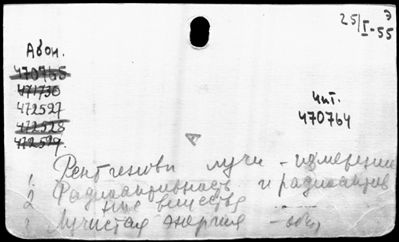 25/I-55
Абон.
470765
471730
472527
472528
472529.
чит.
470764
1. Рентгеновы лучи - измерение
2 Радиоактивность и радиоактив
ные вещества
3 Лучистая энергия -